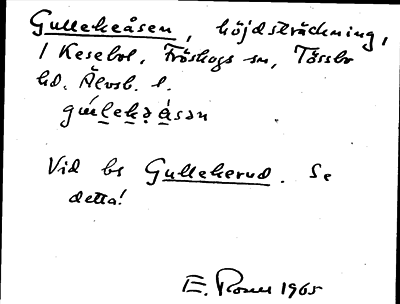 Gullekeåsen, höjdsträckning,
1 Kesebol, Fröskogs sn, Tössbo
hd. Älvsb. l.
Vid bs Gullekerud. Se
detta!
E. Rosen 1965